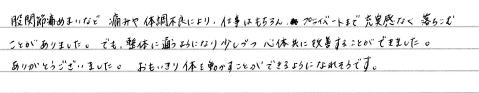 股関節痛めまいなど 痛みや体調不良により、仕事はもちろん、プライベートまで充実感なく落ちこむ
ことがありました。でも、整体に通うようになり少しづつ心体共に改善することができました。
ありがとうございました。おもいきり体を動かすことができるようになれそうです。